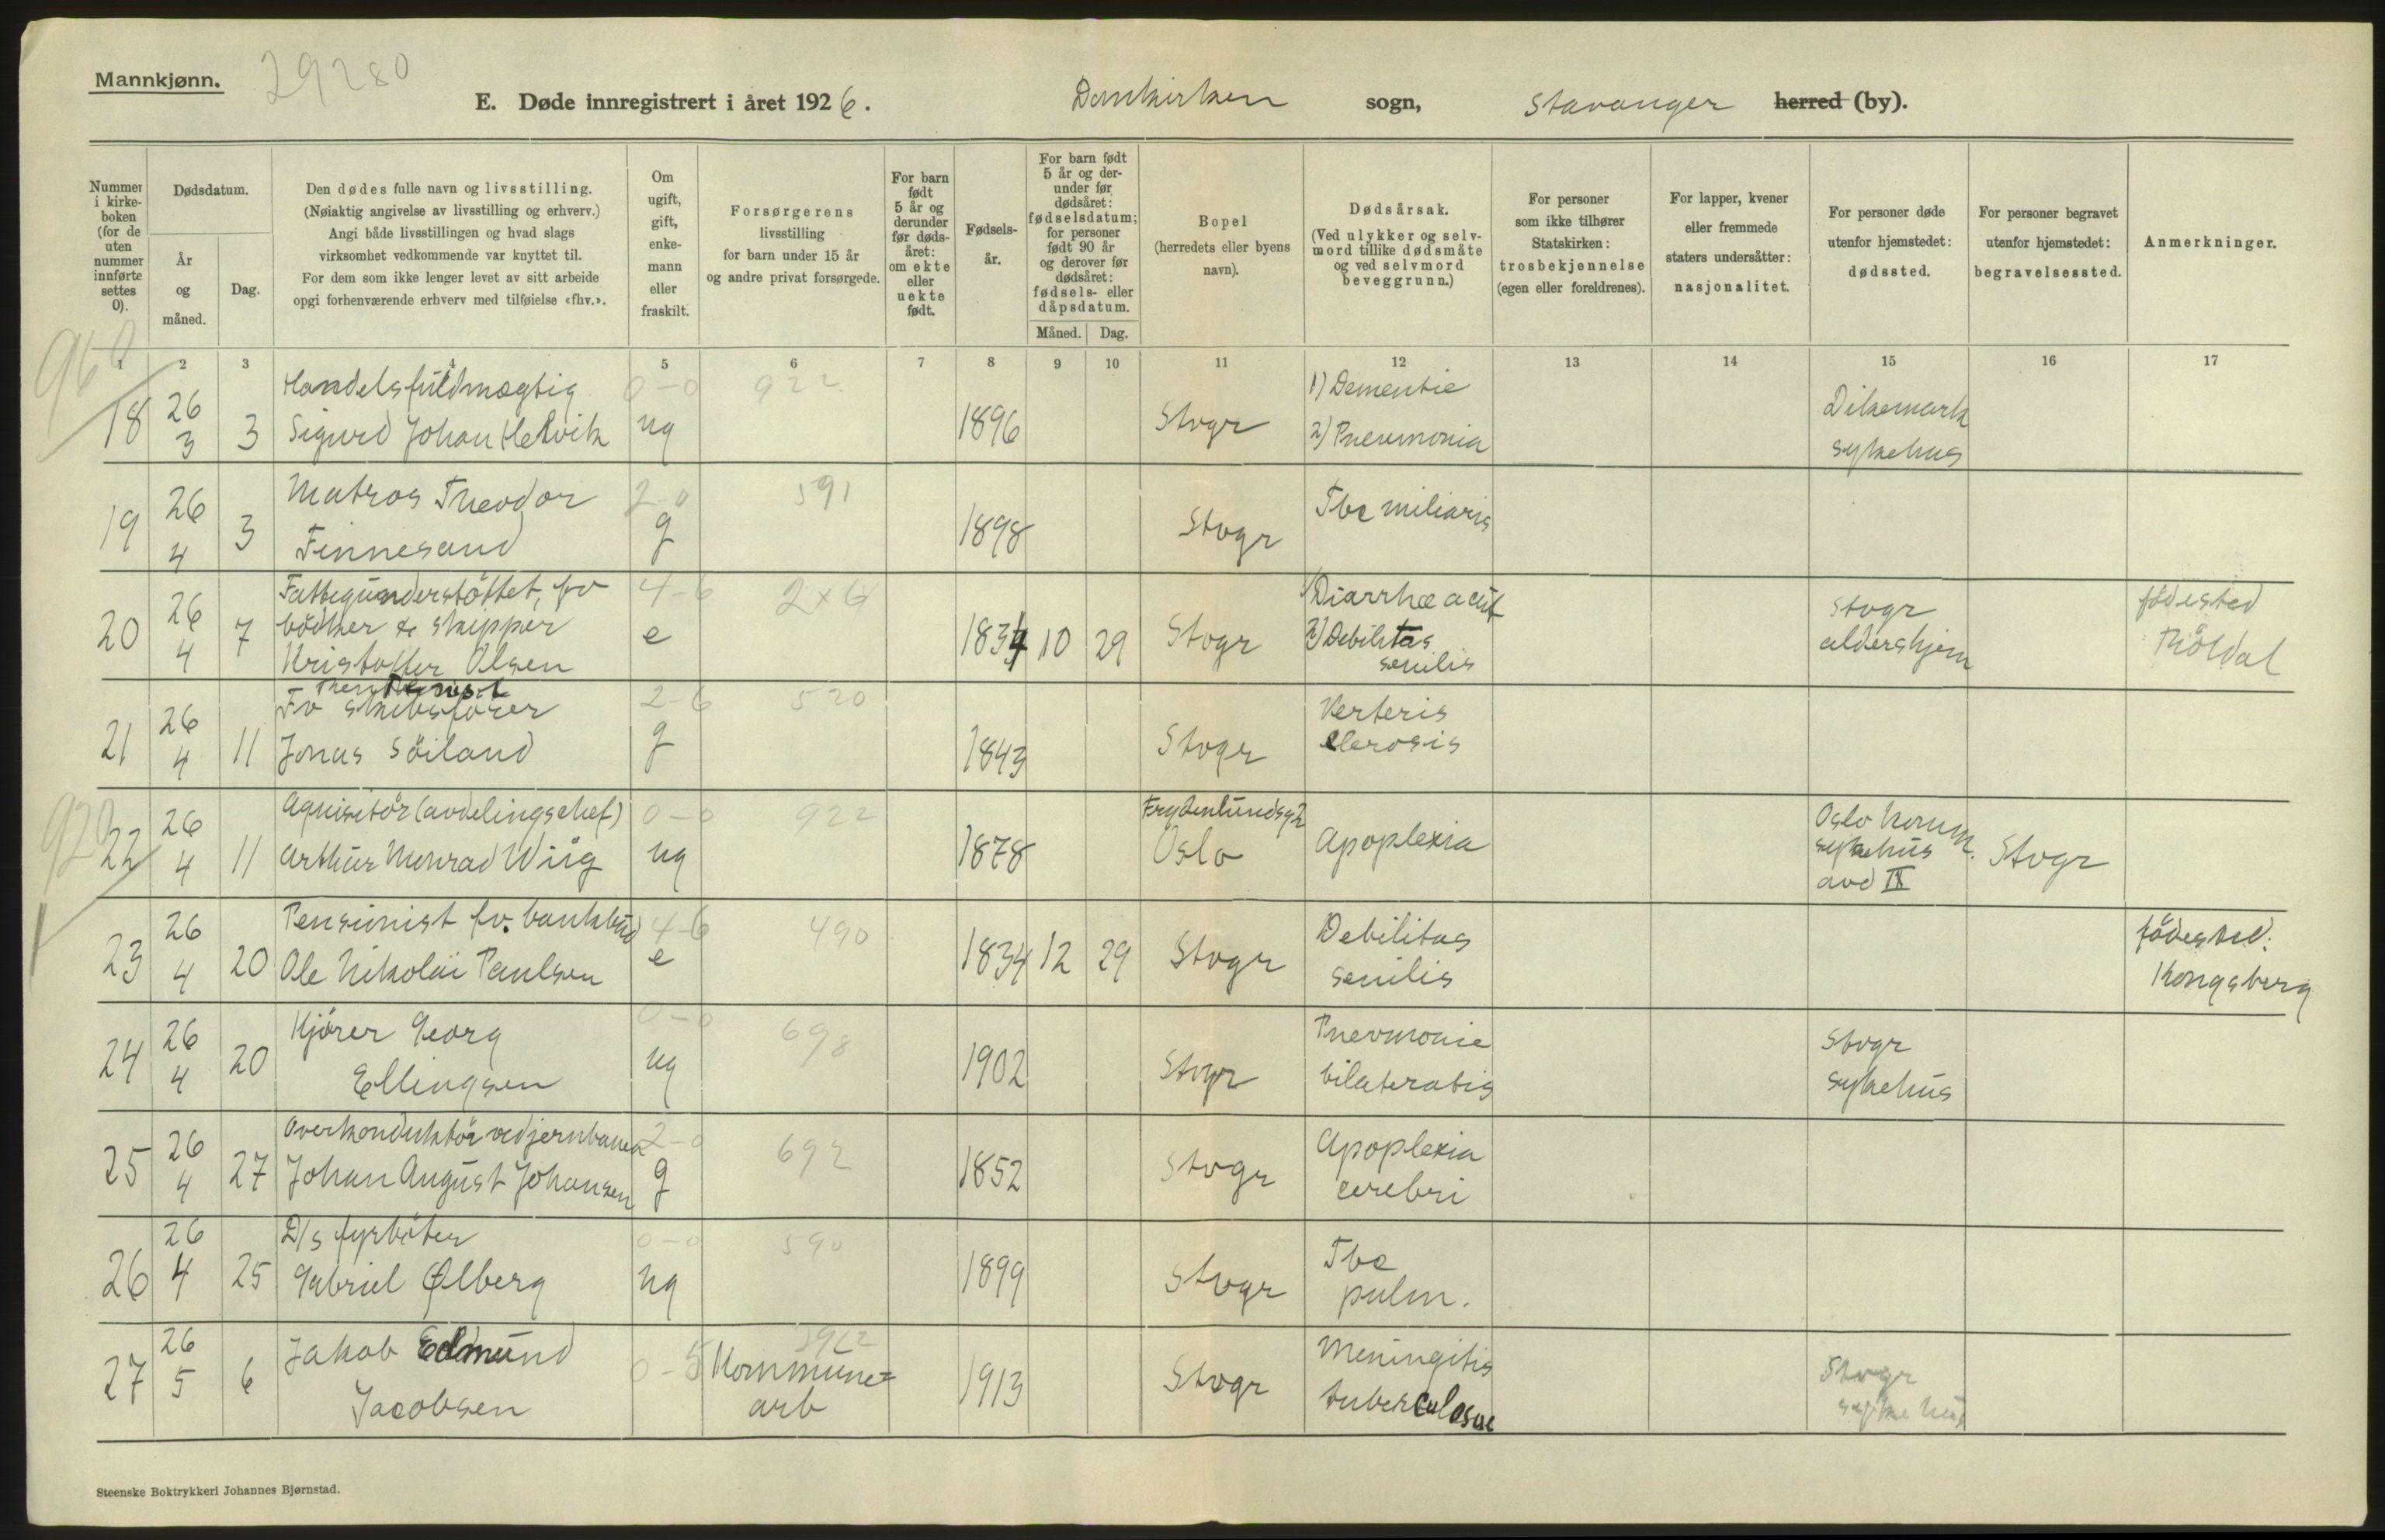 Mannkjønn.
29280
E. Døde innregistrert i året 1926. Domkirken sogn, Stavanger herred (by).
Nummer i kirke-boken (for de uten nummer innførte settes 0).
Dødsdatum.
År og måned.
Dag.
Den dødes fulle navn og livsstilling.
(Nøiaktig angivelse av livsstilling og erhverv.)
Angi både livsstillingen og hvad slags
virksomhet vedkommende var knyttet til.
For dem som ikke lenger levet av sitt arbeide
opgi forhenværende erhverv med tilføielse «fhv.».
Om ugift, gift, enke-mann eller fraskilt.
Forsørgerens
livsstilling
for barn under 15 år
og andre privat forsørgede.
For barn født 5 år og derunder før døds-året: om ekte eller uekte født.
Fødsels-år.
For barn født 5 år og der-under før dødsåret: fødselsdatum; for personer født 90 år og derover før dødsåret: fødsels- eller dåpsdatum.
Måned. Dag.
Bopel
(herredets eller byens navn).
Dødsårsak.
(Ved ulykker og selv-mord tillike dødsmåte og ved selvmord beveggrunn.)
For personer som ikke tilhører Statskirken: trosbekjennelse (egen eller foreldrenes).
For lapper, kvener eller fremmede staters undersåtter: nasjonalitet.
For personer døde utenfor hjemstedet: dødssted.
For personer begravet utenfor hjemstedet: begravelsessted.
Anmerkninger.
1 2 3 4 5 6 7 8 9 10 11 12 13 14 15 16 17
18 26 3 3 Handelsfuldmægtig Sigurd Johan Helvik 0-0 ug 922 1896 Stvgr 1) Dementie 2) Pneumonia Dikemark sykehus
19 26 4 3 Matros Theodor Finnesand 2-0 g 591 1898 Stvgr Tbc miliaris
20 26 4 7 Fattigunderstöttet, fv bödker & skipper Kristoffer Olsen 4-6 e 2x64 1834 10 29 Stvgr 1) Diarrhæ acut 2) Debilitas senilis Stvgr aldershjem födested Röldal
21 26 4 11 Fv skibsfører Jonas Söiland 2-6 g 520 1843 Stvgr Verteris clerosis
920
22 26 4 11 Aquisitör (avdelingschef) Arthur Monrad Wiig 0-0 ug 922 1878 Frydenlundsg 2 Oslo Apoplexia Oslo komm. sykehus avd IX Stvgr
23 26 4 20 Pensionist fv. bankbud Ole Nikolai Paulsen 4-6 e 490 1834 12 29 Stvgr Debilitas senilis födested: Kongsberg
24 26 4 20 Kjörer Georg Ellingsen 0-0 ug 698 1902 Stvgr Pnevmonie bilateratis Stvgr sykehus
25 26 4 27 Overkonduktör ved jernbanen Johan August Johansen 2-0 g 692 1852 Stvgr Apoplexia cerebri
26 26 4 25 D/s fyrböter Gabriel Ølberg 0-0 ug 590 1899 Stvgr Tbc pulm.
27 26 5 6 Jakob Edmund Jacobsen 0-5 Kommune= arb 1913 Stvgr Meningitis tuberculosae Stvgr sykehus
Steenske Boktrykkeri Johannes Bjørnstad.